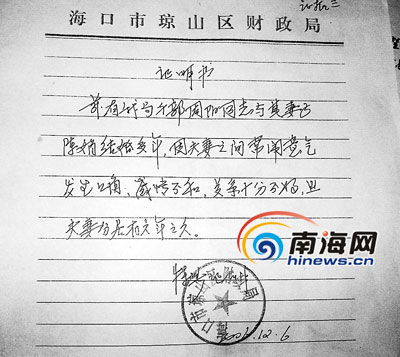 证据三
海口市琼山区财政局
证明书
兹有我局干部周加同志与其妻子
陈婧结婚多年,因夫妻之间常闹意气
发生口角、感情不和,关系十分不好,且
夫妻分居有六年之久。
南海网
hinews.cn
海口市琼山区财政局
12.6